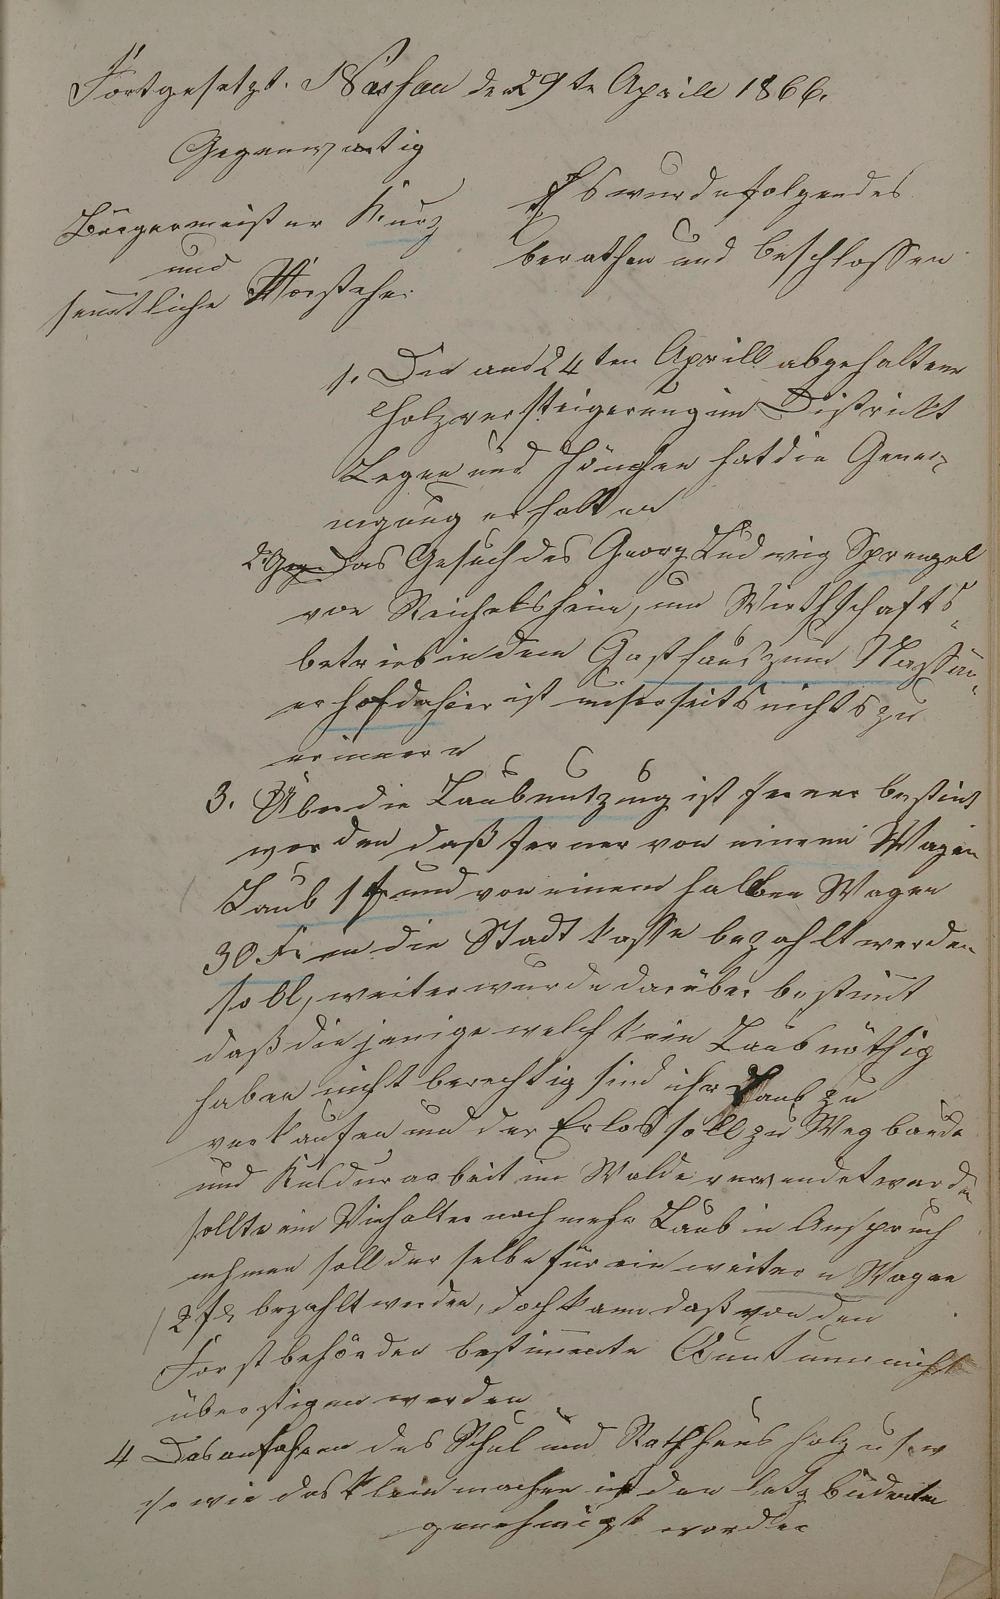 Fortgesetzt. Nassau den 29te Aprill 1866.
Gegenwärtig
Bürgermeister Kurz
und
semtliche Vorsteher
Es wurde folgendes
berathen und beschlossen
1. Die am 24ten Aprill abgehaltene
Holzversteigerung im Districkt
Legen und Hönchen hat die Geneh
migung erhalten
2. Das Gesuch des Georg Ludwig Sprenzel
von Reichelsheim, um Wirthschafts
betrieb in dem Gasthaus zum Nassau
er hof dahier ist unserseits nichts zu
erinnern
3. Über die Laubnutzung ist ferner bestimt
worden daß ferner von einem Wagen
Laub 1 f und von einem halben Wagen
30 Kr in die Stadtkasse bezahlt werden
soll, weiter wurde darüber bestimt
daß die jenige welch kein Laub nöthig
haben nicht berechtig sind ihr Laub zu
verkaufen und der Erlos soll zu Wegbaude
und Kuldurarbeit im Walde verwendet werden
sollte ein Viehalter noch mehr Laub in Anspruch
nehmen soll der selbe für ein weitern Wagen
2 fl bezahlt werden, doch kann daß von den
Forstbehörden bestimmte Quantum nicht
überstigen werden
4 Das anfahren des Schul und Rathhaus holz
so wie das kleinmachen ist den letzbiedenten
genehmigt worden